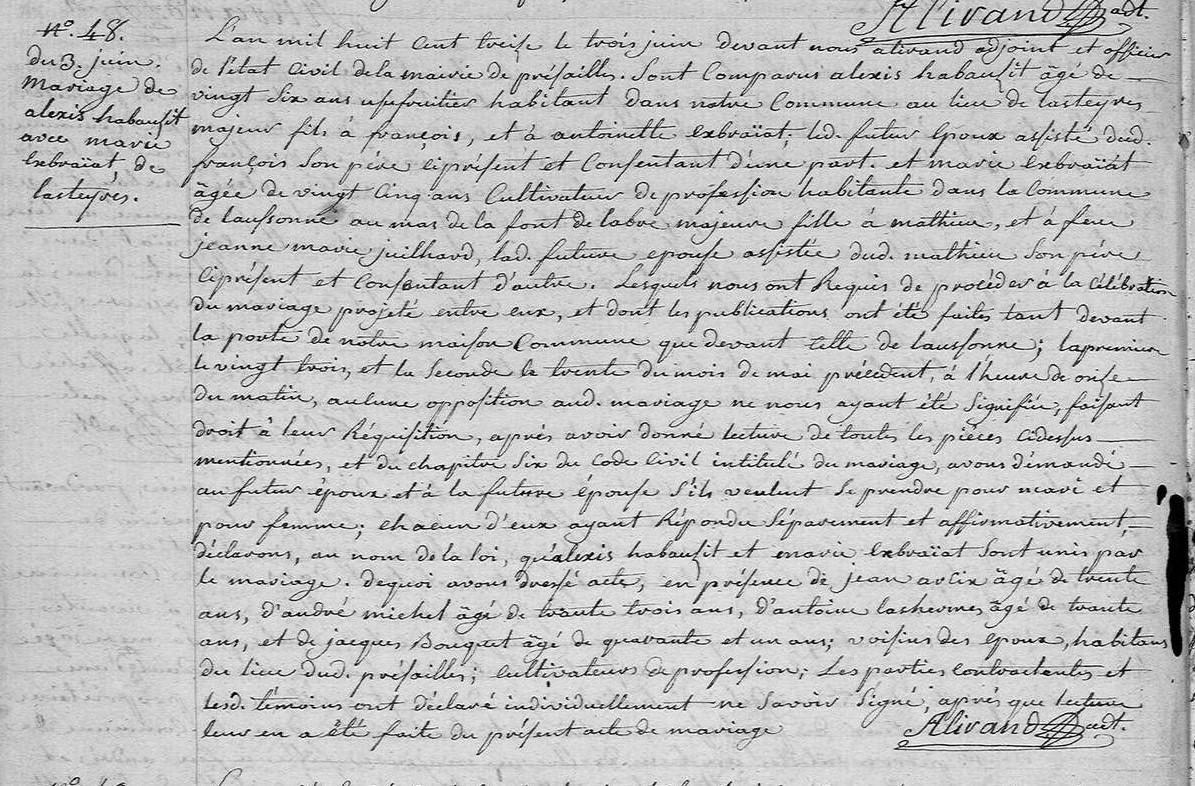 Alivand adt.
n.o 48.
du 3. juin.
mariage de
alexis habauzit
avec marie
Exbraïat, de
lasteyres.
L'an mil huit cent treise le trois juin devant nous alivand adjoint et officier
de l'état Civil de la mairie de présailles. Sont Comparus alexis habauzit âgé de
vingt Six ans usufruitier habitant dans notre Commune au lieu de lasteyres
majeur fils à françois, et à antoinette exbraïat; led. futur Epoux assisté dud.
françois Son père ciprésent et Consentant d'une part. et marie exbraïat
âgée de vingt Cinq ans Cultivateur de profession habitante dans la Commune
de laussonne au mas de la font de labre majeure fille à mathieu, et à feue
jeanne marie juilhard, lad. future epouse assistée dud. mathieu Son père
Ciprésent et Consentant d'autre. Lesquels nous ont Requis de procéder à la Célébration
du mariage projeté entre eux, et dont les publications ont été faites tant devant
la porte de notre maison Commune que devant Celle de laussonne; la premiere
le vingt trois, et la Seconde le trente du mois de mai précédent, à l'heure de onse
du matin, aucune opposition aud. mariage ne nous ayant été Signifiée, faisant
droit à leur Réquisition, après avoir donné lecture de toutes les pièces cidessus
mentionnées, et du chapitre Six du Code Civil intitulé du mariage, avons démandé
au futur époux et à la future épouse S'ils veulent Se prendre pour mari et
pour femme; chacun d'eux ayant Répondu Séparement et affirmativement
déclarons, au nom de la loi, qu'alexis habauzit et marie exbraïat Sont unis par
le mariage. dequoi avons dressé acte, en présence de jean arlix âgé de trente
ans, d'andré michel âgé de trante trois ans, d'antoine lashermes, âgé de trante
ans, et de jacques Bouquet âgé de quarante et un ans; voisins des epoux, habitans
du lieu dud. présailles; cultivateurs de profession; Les parties contractentes et
lesd. témoins ont déclaré individuellement ne Savoir Signé, après que lecture
leur en a été faite du présent acte de mariage
Alivand adt.